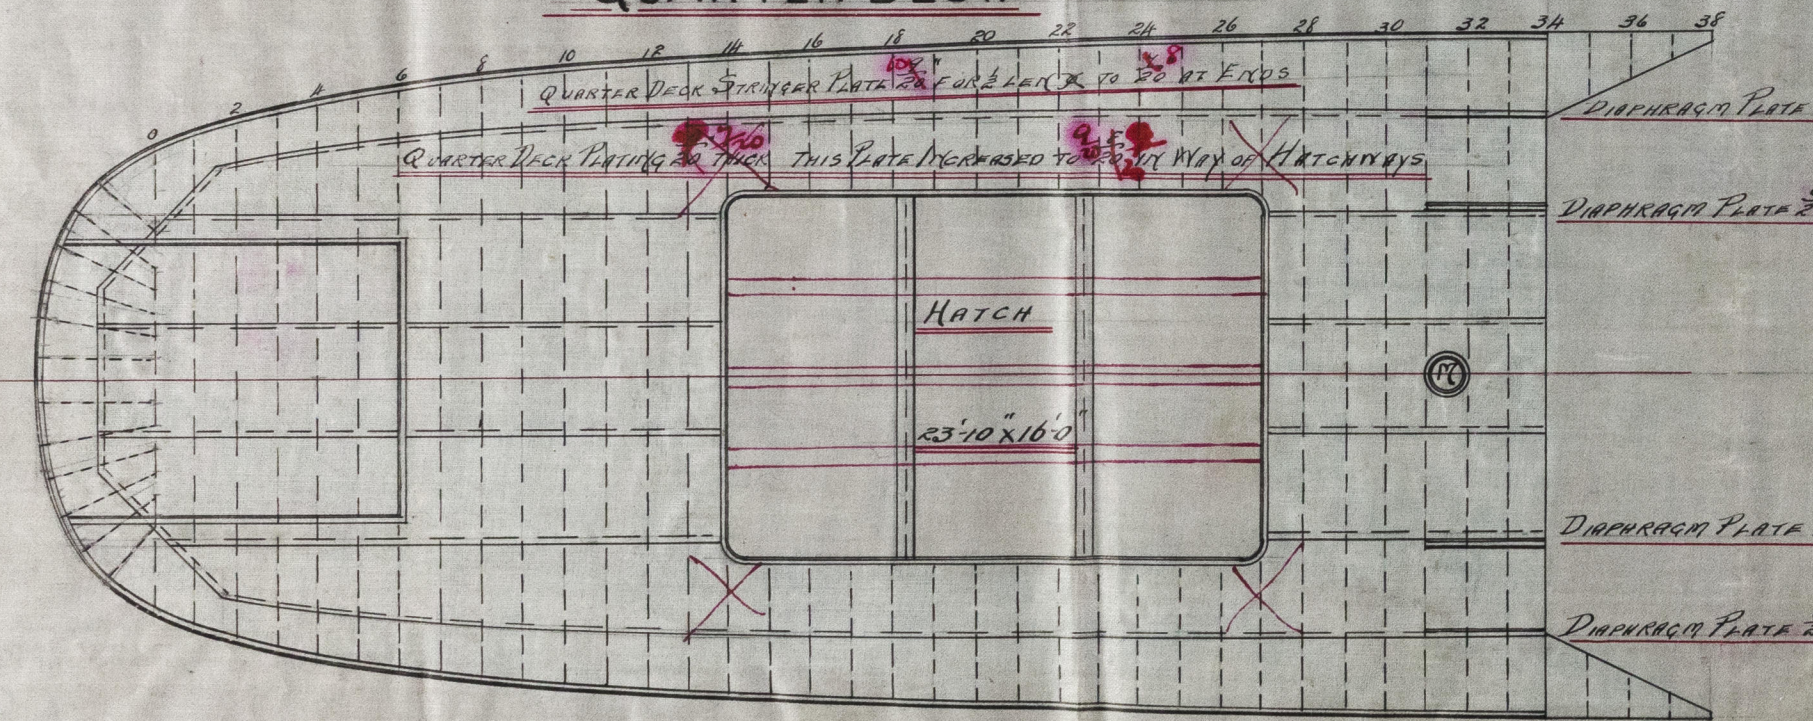 QUARTER DECK
0 2 4 6 8 10 12 14 16 18 20 22 24 26 28 30 32 34 36 38
QUARTER DECK STRINGER PLATE FOR ½ LEN TO 20 AT ENDS
DIAPHRAGM PLATE
QUARTER DECK PLATING THICK THIS PLATE INCREASED TO IN WAY OF HATCHWAYS
DIAPHRAGM PLATE
HATCH
M
23'-10" X 16'-0"
DIAPHRAGM PLATE
DIAPHRAGM PLATE